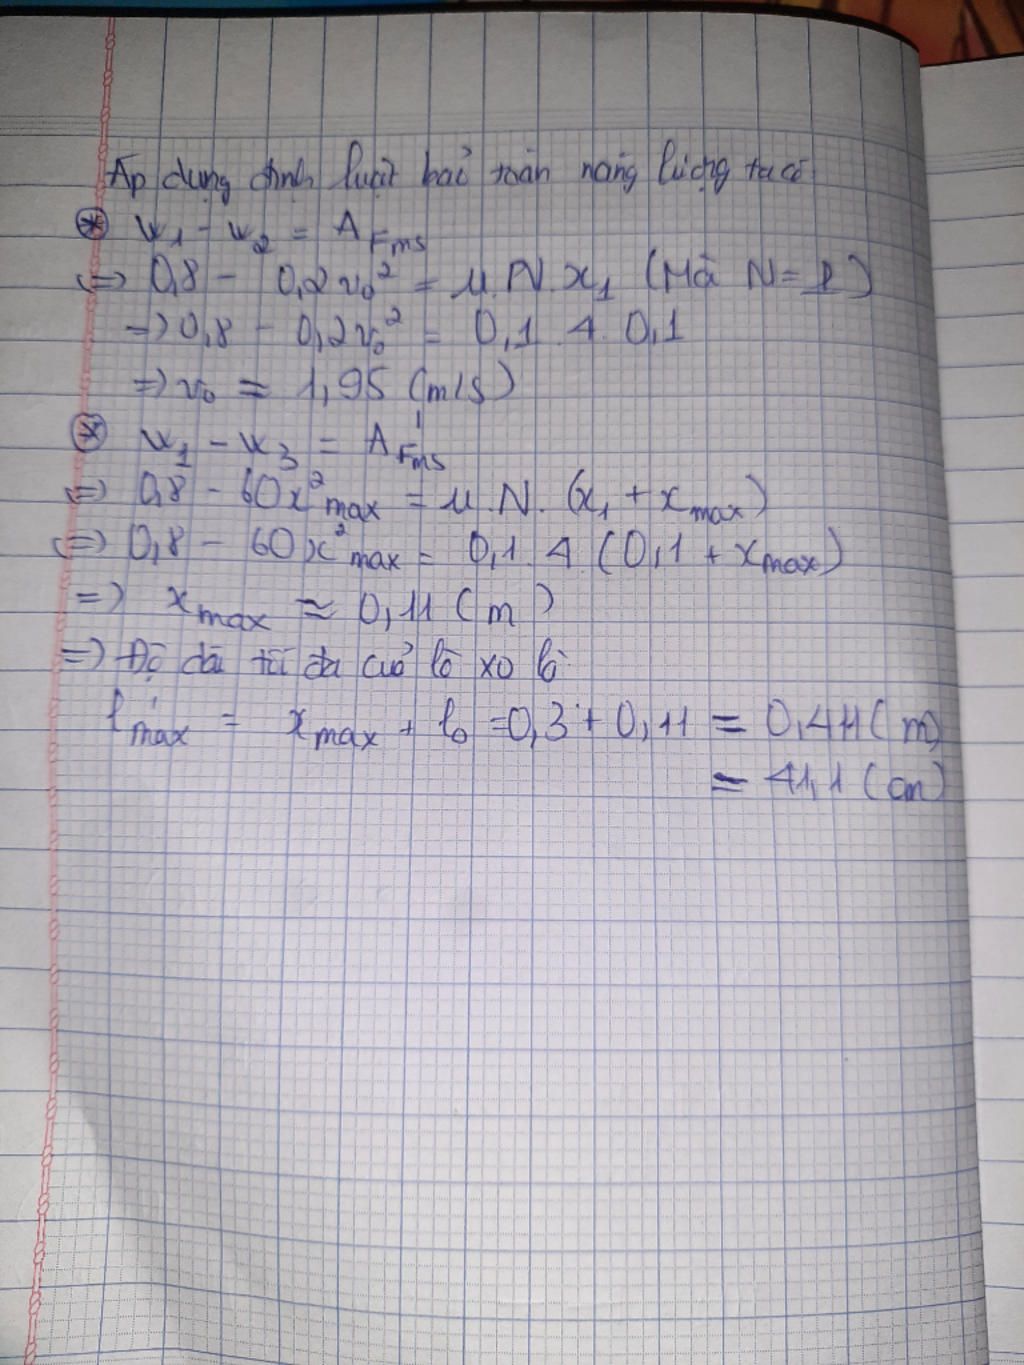 Áp dụng định luật bảo toàn năng lượng ta có
⊛ W₁ - W₂ = A_Fms
⇔ 0,8 - 0,2v₀² = μ.N.x₁ (Mà N = P)
⇒ 0,8 - 0,2v₀² = 0,1.4.0,1
⇒ v₀ ≈ 1,95 (m/s)
⊛ W₁ - W₃ = A'_Fms
⇔ 0,8 - 60x²max = μ.N.(x₁ + xmax)
⇔ 0,8 - 60x²max = 0,1.4(0,1 + xmax)
⇒ xmax ≈ 0,11 (m)
⇒ Độ dài tối đa của lò xo là
lmax = xmax + l₀ = 0,3 + 0,11 = 0,411 (m)
= 41,1 (cm)